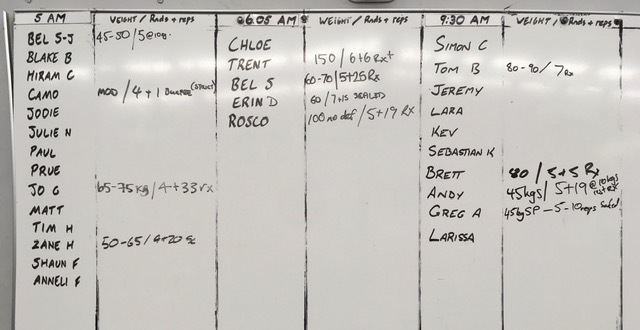 5 AM WEIGHT / Rnds + reps 6.05 AM WEIGHT / Rnds + reps 9:30 AM WEIGHT / Rnds + reps
BEL S-J 45-50 / 5@10kg
BLAKE B
HIRAM C
CAMO MOD / 4 + 1 BURPEE (STRICT)
JODIE
JULIE N
PAUL
PRUE
JO G 65-75kg / 4+33 rx
MATT
TIM H
ZANE H 50-65 / 4+20 sc
SHAUN F
ANNELI F
CHLOE
TRENT 150 / 6+6 Rx+
BEL S 60-70 / 5+26 Rx
ERIN D 60 / 7+15 SCALED
ROSCO 100 no def / 5+19 Rx
SIMON C
TOM B 80-90 / 7 Rx
JEREMY
LARA
KEV
SEBASTIAN K
BRETT 80 / 5+5 Rx
ANDY 45kgs / 5+19 @10kgs
GREG A 45kg SP - 5-10 reps
LARISSA